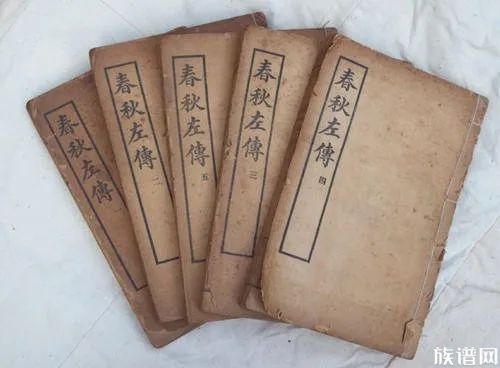 春秋左傳
春秋左傳 二
春秋左傳 五
春秋左傳 三
春秋左傳 四
族谱网